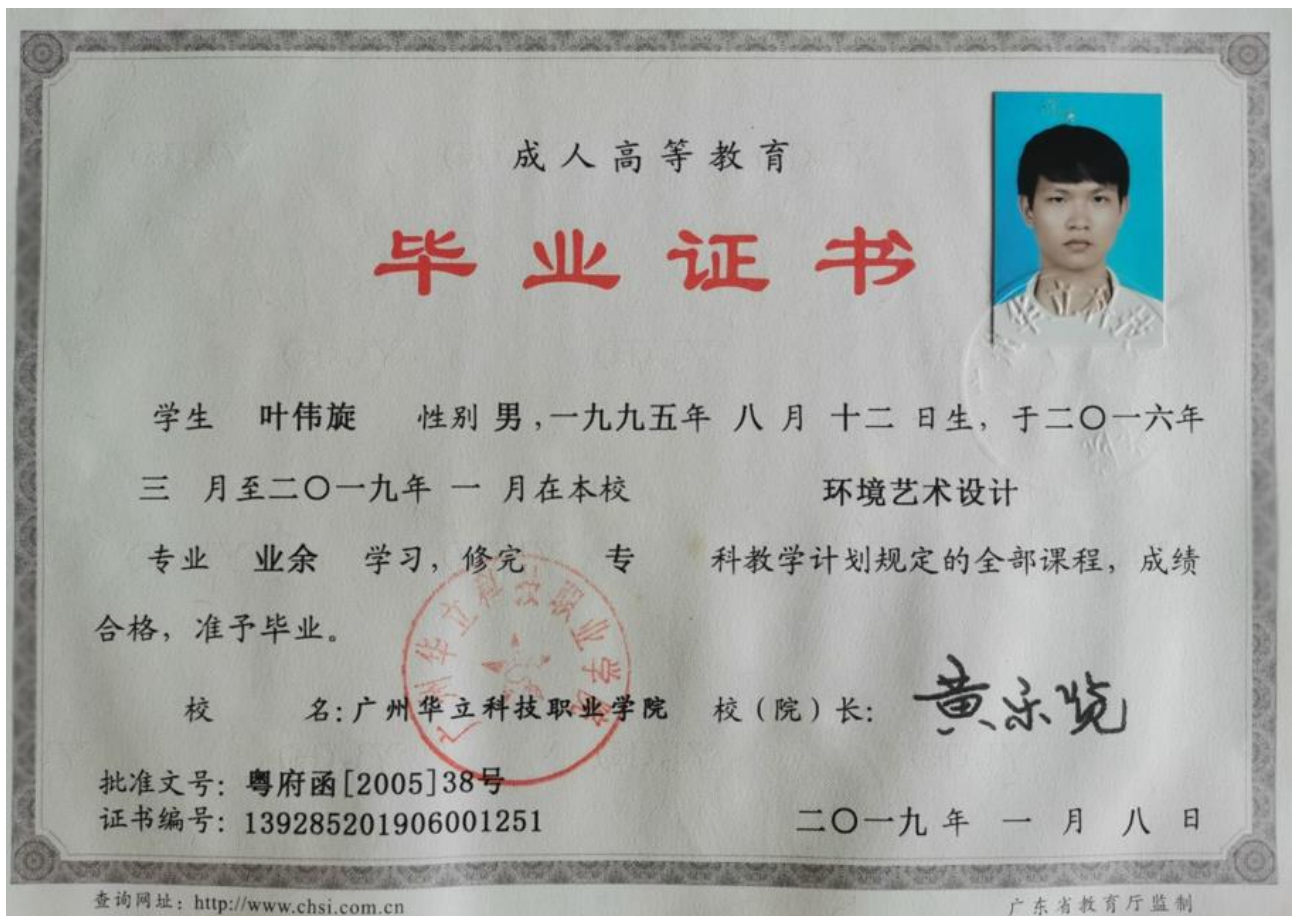 成人高等教育
毕业证书
学生 叶伟旋 性别 男,一九九五年 八 月 十二 日生, 于二〇一六年
三 月至二〇一九年 一 月在本校 环境艺术设计
专业 业余 学习, 修完 专 科教学计划规定的全部课程, 成绩
合格, 准予毕业。
校 名: 广州华立科技职业学院 校(院)长: 黄乐览
广州华立科技职业学院
批准文号: 粤府函[2005]38号
证书编号: 139285201906001251
二〇一九 年 一 月 八 日
查询网址: http://www.chsi.com.cn
广东省教育厅监制